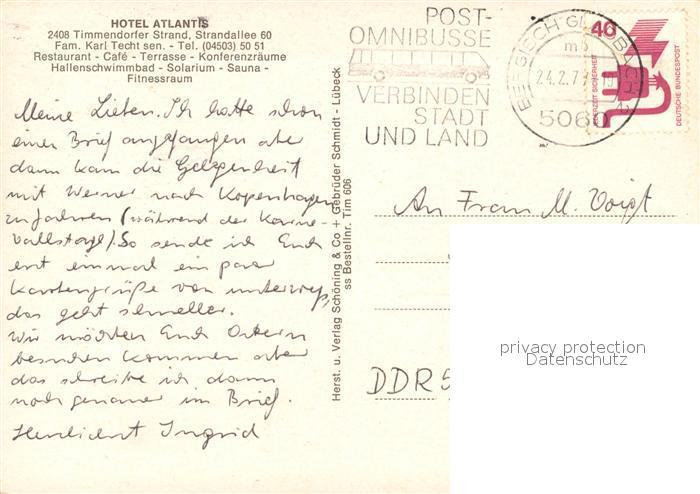 HOTEL ATLANTIS
2408 Timmendorfer Strand, Strandallee 60
Fam. Karl Techt sen. - Tel. (04503) 50 51
Restaurant - Café - Terrasse - Konferenzräume
Hallenschwimmbad - Solarium - Sauna -
Fitnessraum
Meine Lieben. Ich hatte schon
einen Brief angefangen aber
dann kam die Gelegenheit
mit Werner nach Kopenhagen
zu fahren (während der Karne-
valstage). So sende ich Euch
erst einmal ein paar
Kartengrüße von unterwegs,
das geht schneller.
Wir möchten Euch Ostern
besuchen kommen aber
das schreibe ich dann
noch genauer im Brief.
Herzlichst Ingrid
Herst. u. Verlag Schöning & Co + Gebrüder Schmidt - Lübeck
ss Bestellnr. Tim 606
POST-
OMNIBUSSE
VERBINDEN
STADT
UND LAND
BERGISCH GLADBACH 2
mb
24.2.7
5060
40
JEDERZEIT SICHERHEIT
DEUTSCHE BUNDESPOST
An Frau M. Voigt
DDR 5
privacy protection
Datenschutz